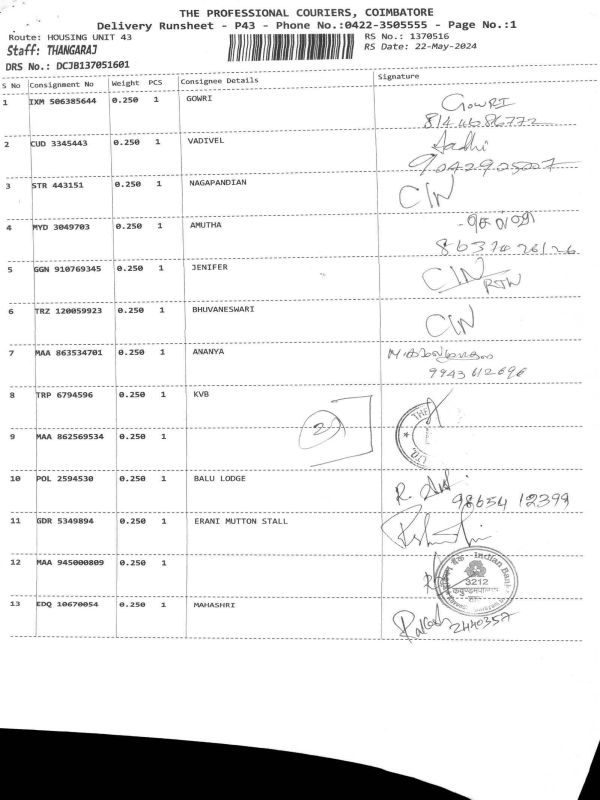 THE PROFESSIONAL COURIERS, COIMBATORE
Delivery Runsheet - P43 - Phone No.:0422-3505555 - Page No.:1
Route: HOUSING UNIT 43 RS No.: 1370516
Staff: THANGARAJ RS Date: 22-May-2024
DRS No.: DCJB137051601
S No Consignment No Weight PCS Consignee Details Signature
1 IXM 506385644 0.250 1 GOWRI GOWRI
2 CUD 3345443 0.250 1 VADIVEL
9042925007
3 STR 443151 0.250 1 NAGAPANDIAN
4 MYD 3049703 0.250 1 AMUTHA
8637426126
5 GGN 910769345 0.250 1 JENIFER
6 TRZ 120059923 0.250 1 BHUVANESWARI
7 MAA 863534701 0.250 1 ANANYA
9943612696
8 TRP 6794596 0.250 1 KVB THE
9 MAA 862569534 0.250 1 2 LTD.
10 POL 2594530 0.250 1 BALU LODGE
98654 12399
11 GDR 5349894 0.250 1 ERANI MUTTON STALL
12 MAA 945000809 0.250 1 Indian Bank
3212
13 EDQ 10670054 0.250 1 MAHASHRI
2440357